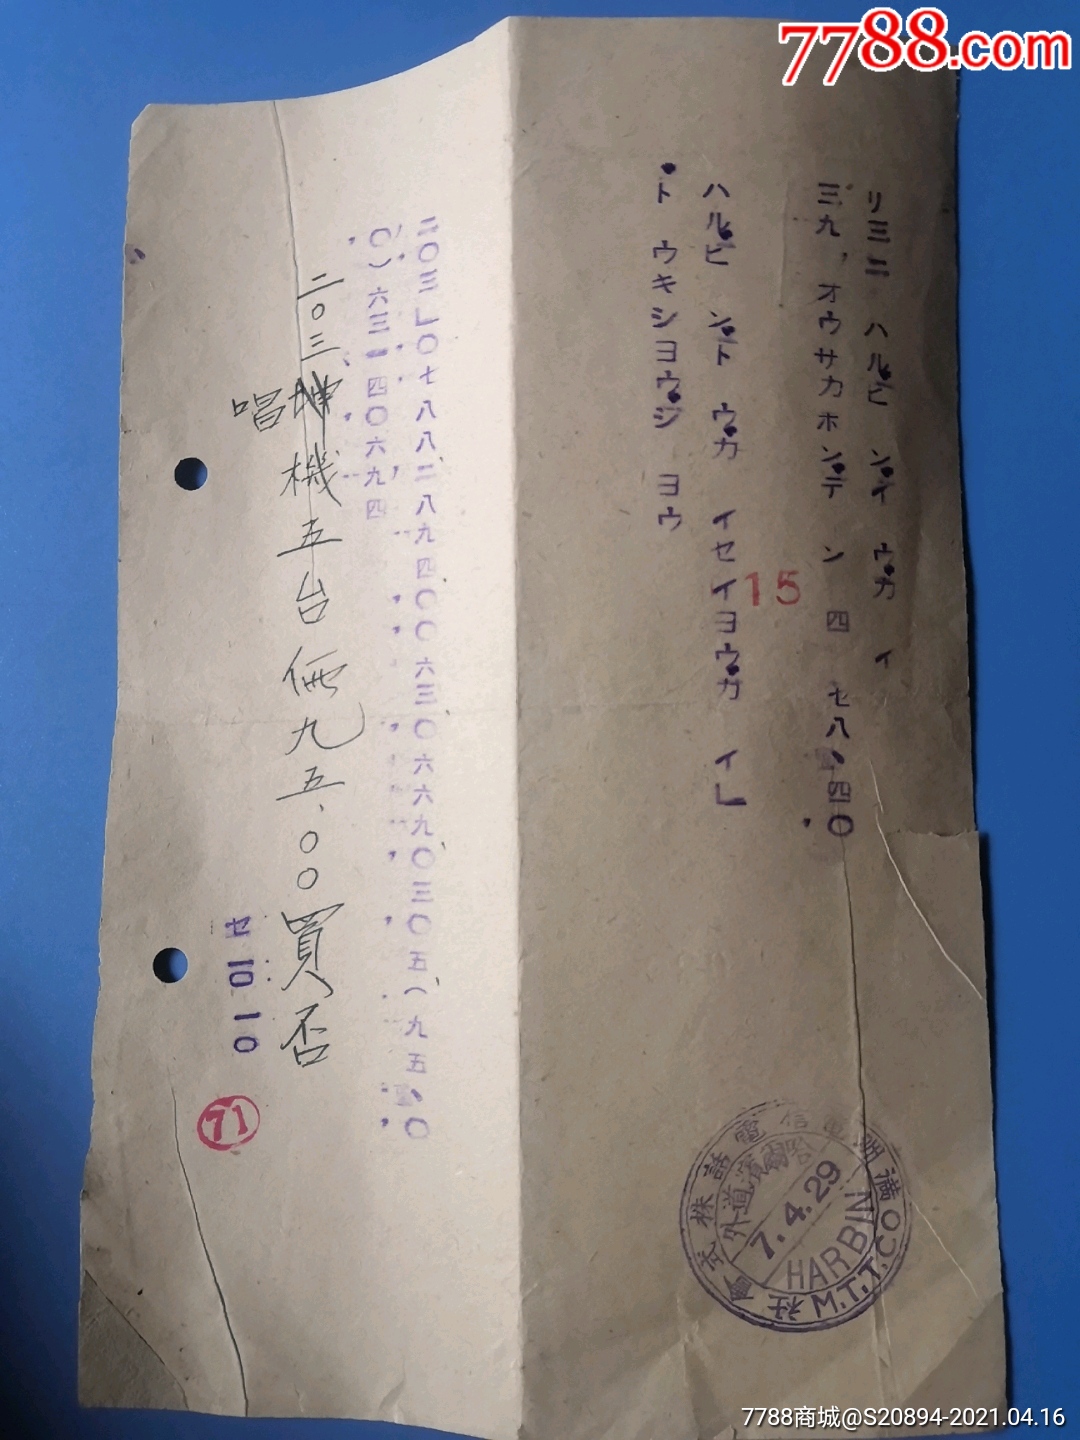 7788.com
リ三二 ハルビンイウカイ
三九,オウサカホンデン 四七八、四〇
ハルビントウカイセイヨウカイ」
トウキシヨウジヨウ
15
二〇三」〇七八八二八九四〇〇六三〇六六九〇三〇五(九五、〇
〇)六三一四〇六九四
二〇三
唱機五台価九五、〇〇買否
セ 10.10
71
満洲電信電話株式会社
哈爾濱道外
7.4.29
HARBIN
M.T.T.CO
7788商城@S20894-2021.04.16